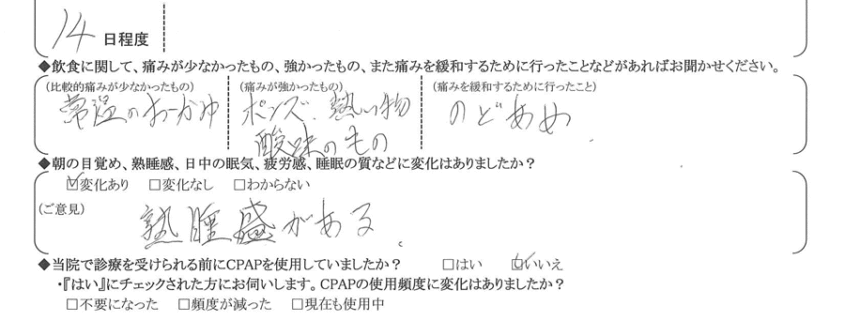 14 日程度
◆飲食に関して、痛みが少なかったもの、強かったもの、また痛みを緩和するために行ったことなどがあればお聞かせください。
(比較的痛みが少なかったもの) (痛みが強かったもの) (痛みを緩和するために行ったこと)
常温のおかゆ ポンズ、熱い物 のどあめ
酸味のもの
◆朝の目覚め、熟睡感、日中の眠気、疲労感、睡眠の質などに変化はありましたか？
☑変化あり □変化なし □わからない
(ご意見)
熟睡感がある
◆当院で診療を受けられる前にCPAPを使用していましたか？ □はい ☑いいえ
・『はい』にチェックされた方にお伺いします。CPAPの使用頻度に変化はありましたか？
□不要になった □頻度が減った □現在も使用中